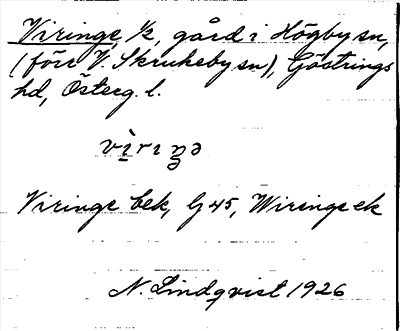 Viringe, ½, gård i Högby sn,
(förr V. Skrukeby sn), Göstrings
hd, Österg. l.
vìrıŋə
Viringe bek, G 45, Wirings ek
N. Lindqvist 1926